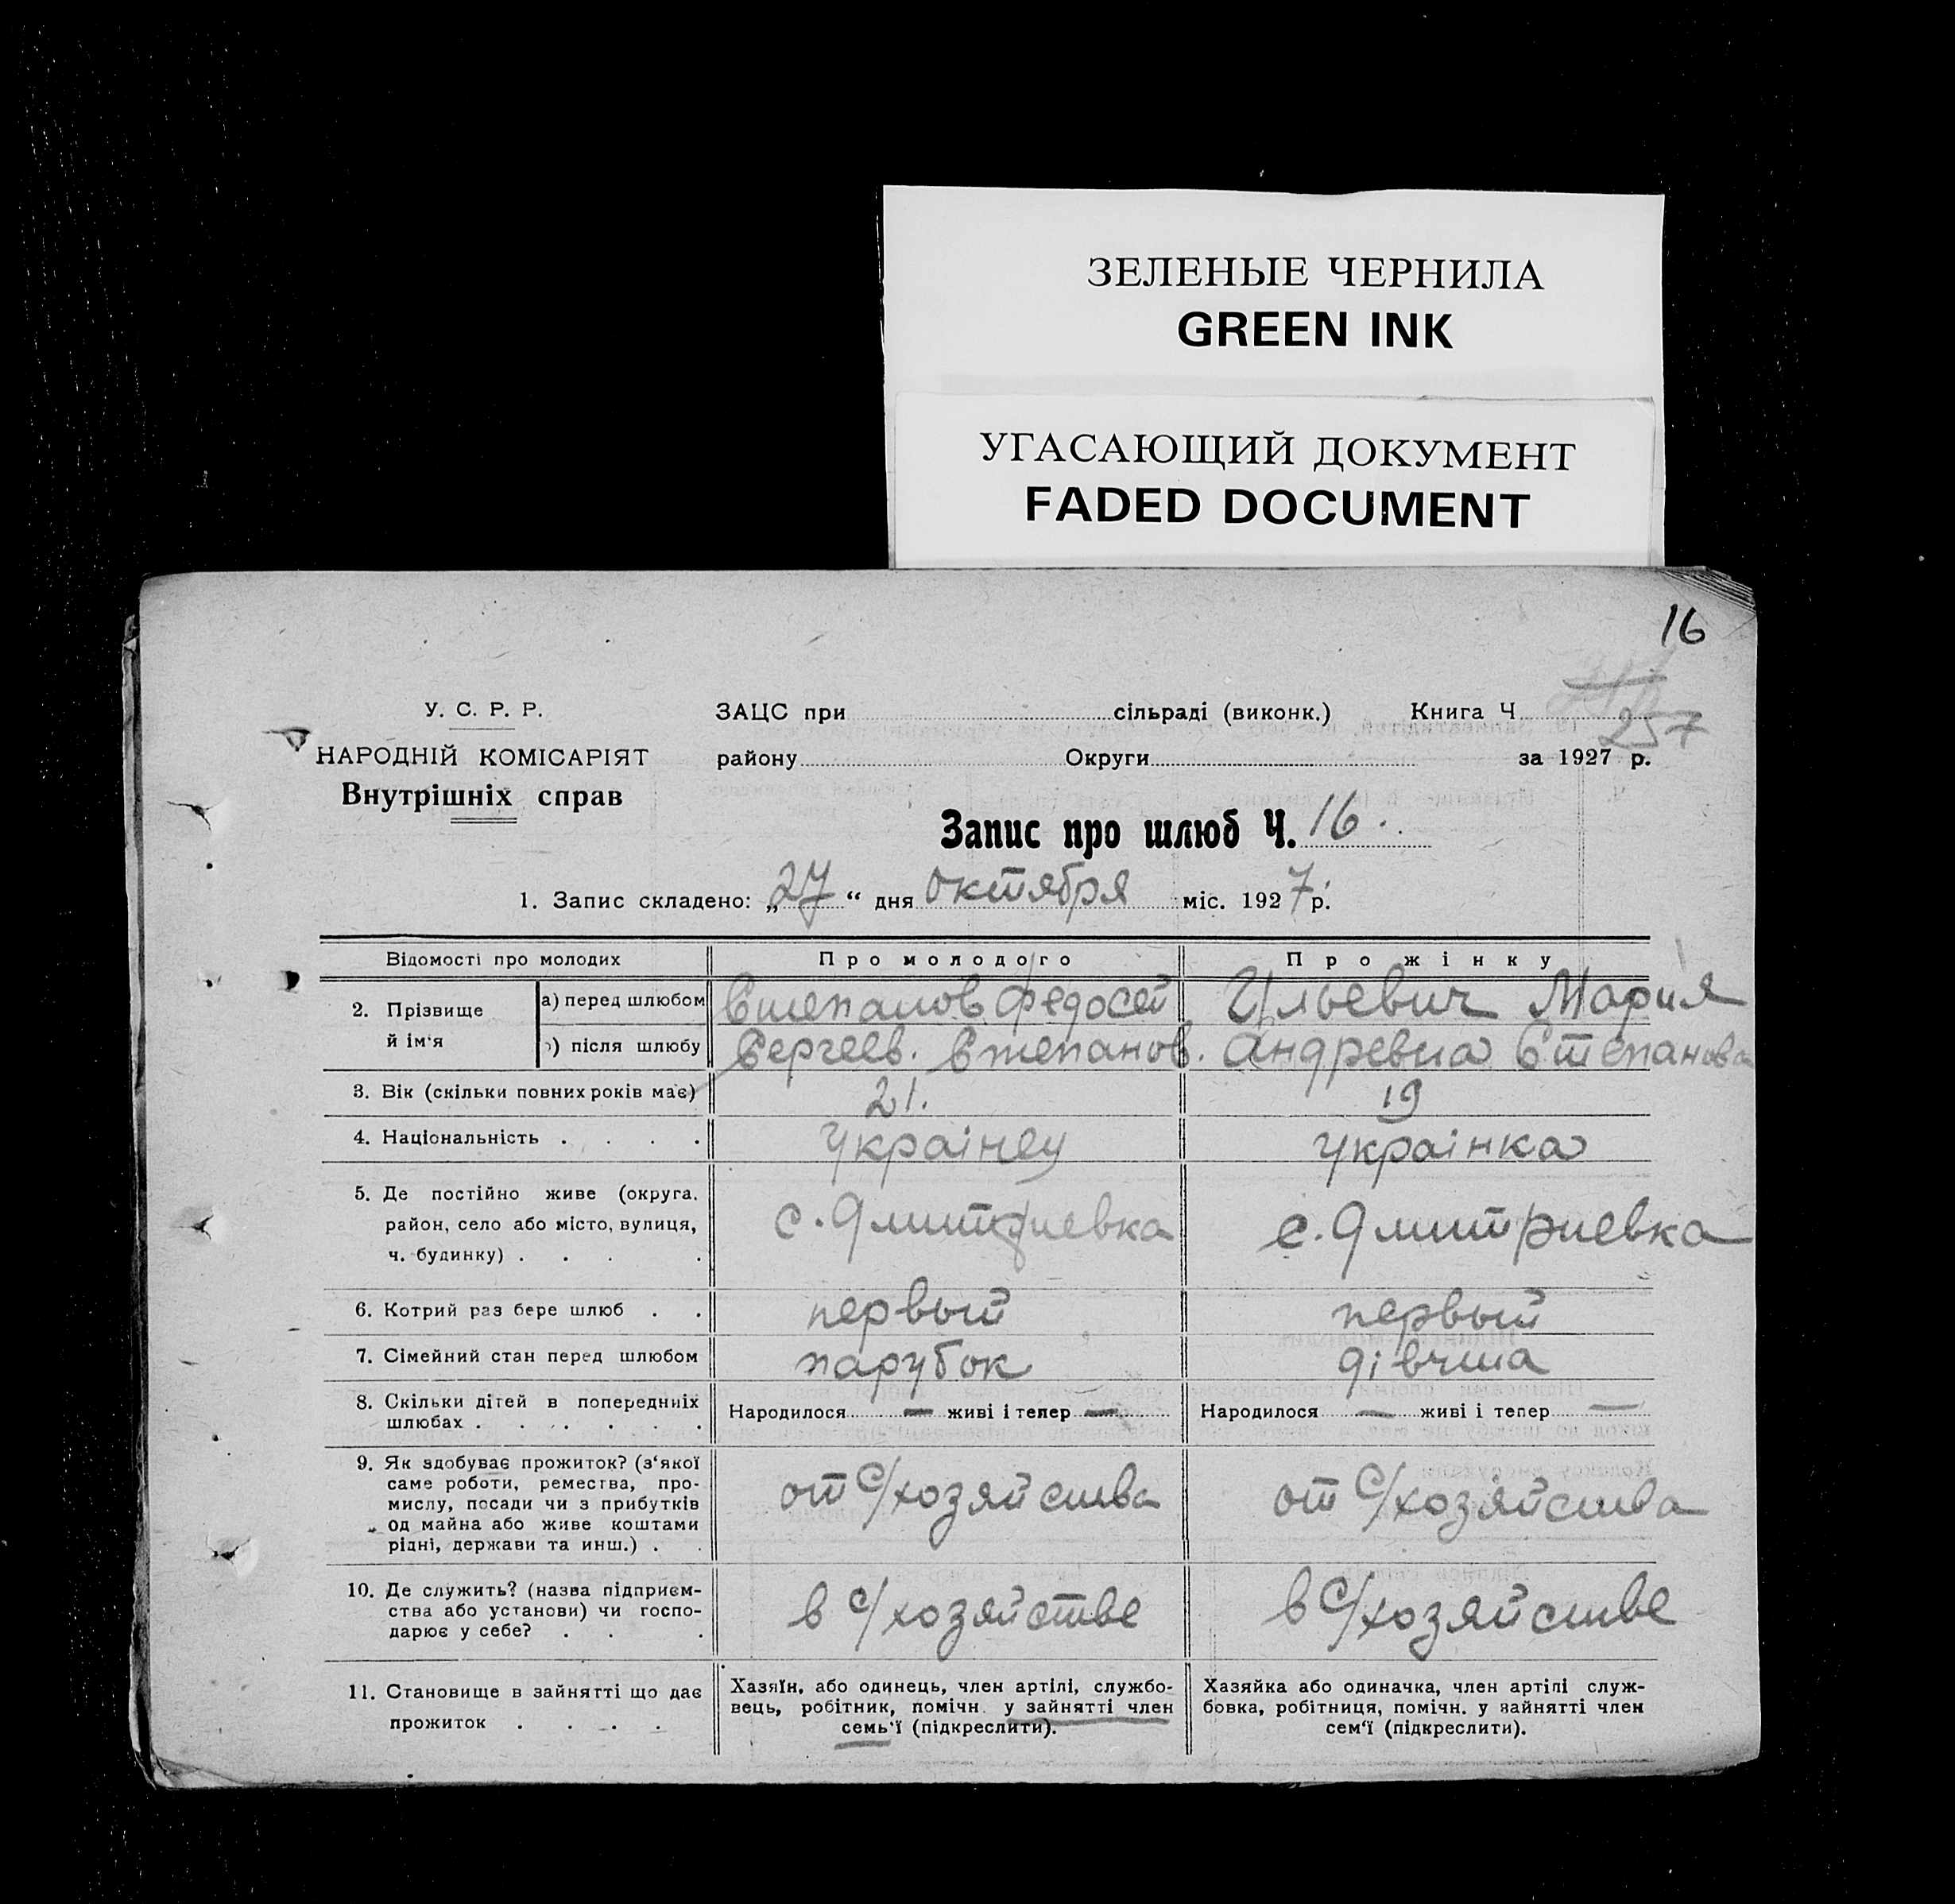 ЗЕЛЕНЫЕ ЧЕРНИЛА
GREEN INK
УГАСАЮЩИЙ ДОКУМЕНТ
FADED DOCUMENT
16
У. С. Р. Р.
НАРОДНІЙ КОМІСАРІЯТ
Внутрішніх справ
ЗАЦС при сільраді (виконк.) Книга Ч.
257
району Округи за 1927 р.
Запис про шлюб Ч. 16.
1. Запис складено: „27“ дня Октября міс. 1927 р.
Відомості про молодих Про молодого Про жінку
2. Прізвище й ім‘я а) перед шлюбом Степанов Федосей Ильевич Мария
в) після шлюбу Сергеев. Степанов. Андревна Степанова
3. Вік (скільки повних років має) 21. 19
4. Національність . . . . Українец українка
5. Де постійно живе (округа, район, село або місто, вулиця, ч. будинку) . . . . с. Дмитриевка с. Дмитриевка
6. Котрий раз бере шлюб . . первый первый
7. Сімейний стан перед шлюбом парубок дівчина
8. Скільки дітей в попередніх шлюбах . . . . . . . Народилося — живі і тепер — Народилося — живі і тепер —
9. Як здобуває прожиток? (з‘якої саме роботи, ремества, промислу, посади чи з прибутків од майна або живе коштами рідні, держави та инш.) . . от с/хозяйства от с/хозяйства
10. Де служить? (назва підприємства або установи) чи господарює у себе? . . . в с/хозяйстве в с/хозяйстве
11. Становище в зайнятті що дає прожиток . . . .
Хазяїн, або одинець, член артілі, службовець, робітник, помічн. у зайнятті член семь‘ї (підкреслити).
Хазяйка або одиначка, член артілі службовка, робітниця, помічн. у зайнятті член сем‘ї (підкреслити).